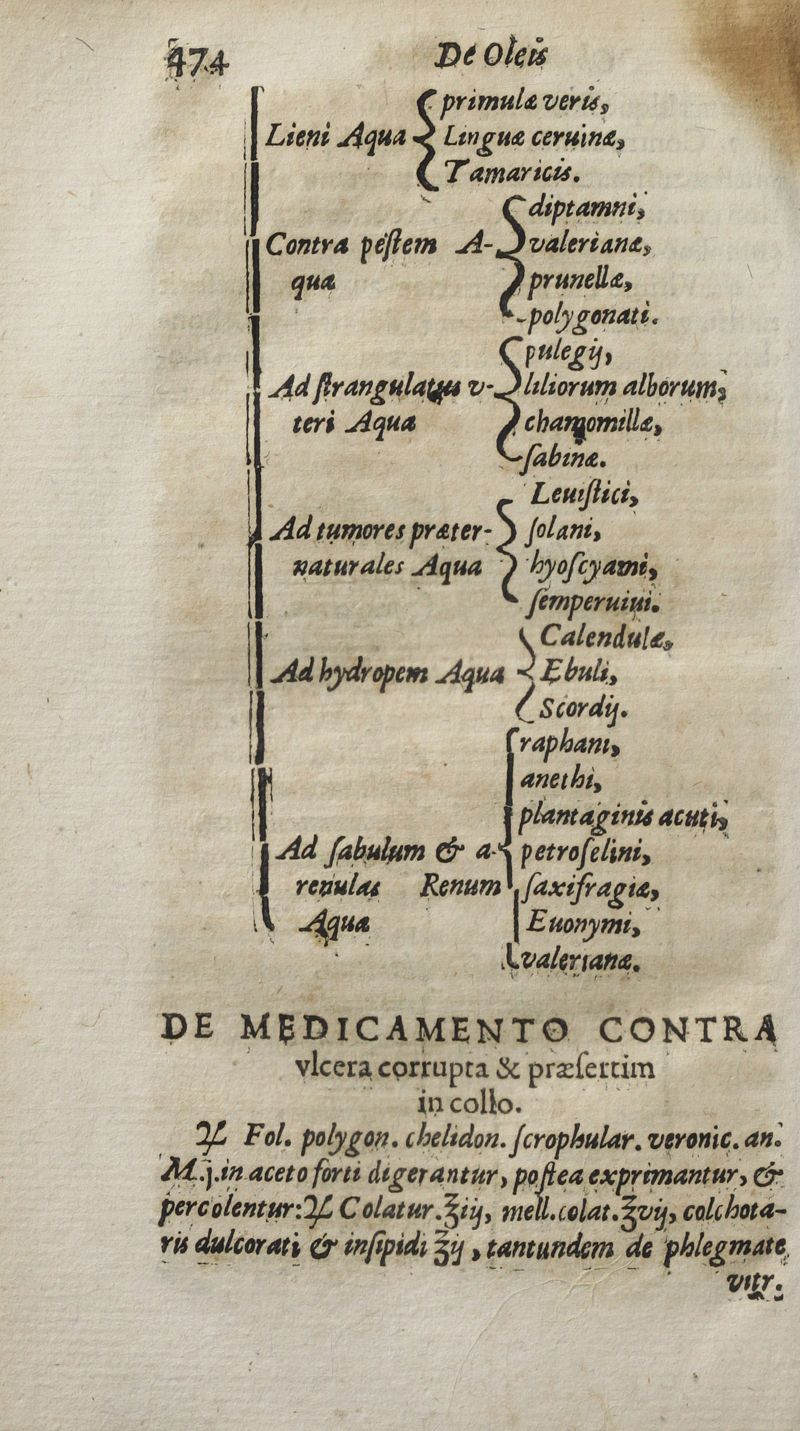 474 De Oleis
primulæ veris,
Lieni Aqua Linguæ ceruinæ,
Tamaricis.
diptamni,
Contra peſtem A- valerianæ,
qua prunellæ,
polygonati.
pulegij,
Ad ſtrangulatus v- liliorum alborum,
teri Aqua chamomillæ,
ſabinæ.
Leuiſtici,
Ad tumores præter- ſolani,
naturales Aqua hyoſcyami,
ſemperuiui.
Calendulæ,
Ad hydropem Aqua Ebuli,
Scordij.
raphani,
anethi,
plantaginis acuti,
Ad ſabulum & a- petroſelini,
renulas Renum ſaxifragiæ,
Aqua Euonymi,
valerianæ.
DE MEDICAMENTO CONTRA
vlcera corrupta & præſertim
in collo.
℞ Fol. polygon. chelidon. ſcrophular. veronic. an.
M.j. in aceto forti digerantur, poſtea exprimantur, &
percolentur: ℞ Colatur. ℥iij, mell. colat. ℥vij, colchota-
ris dulcorati & inſipidi ℥ij, tantundem de phlegmate
vitr.